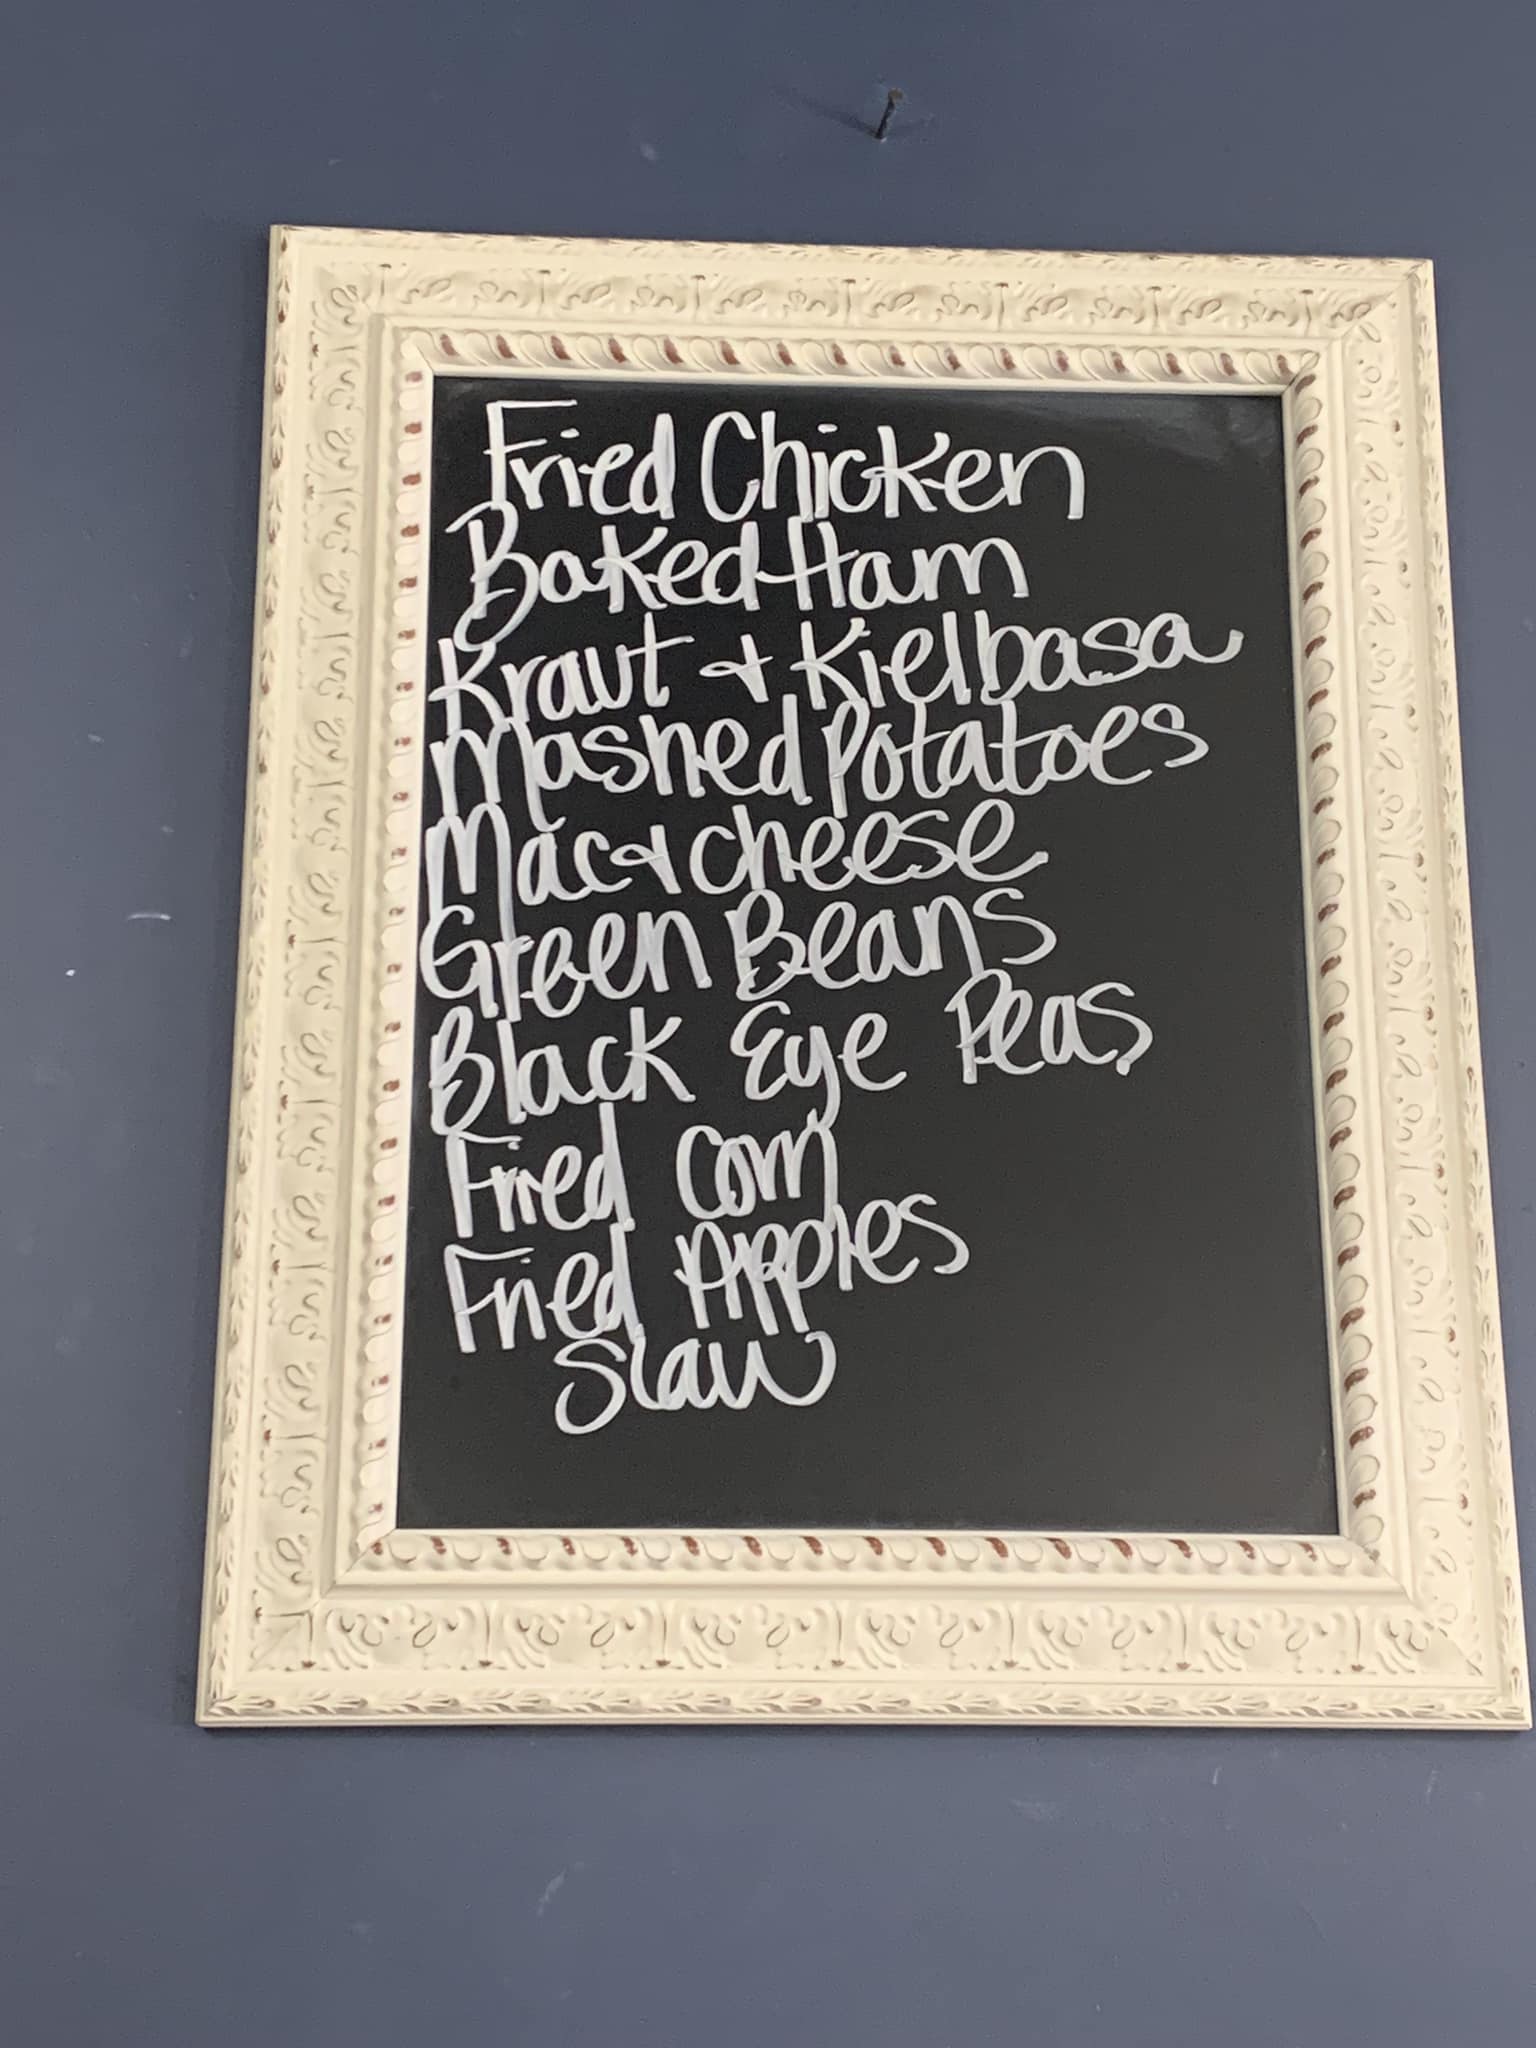 Fried Chicken
Baked Ham
Kraut & Kielbasa
Mashed Potatoes
Mac & cheese
Green Beans
Black Eye Peas
Fried Corn
Fried Apples
Slaw